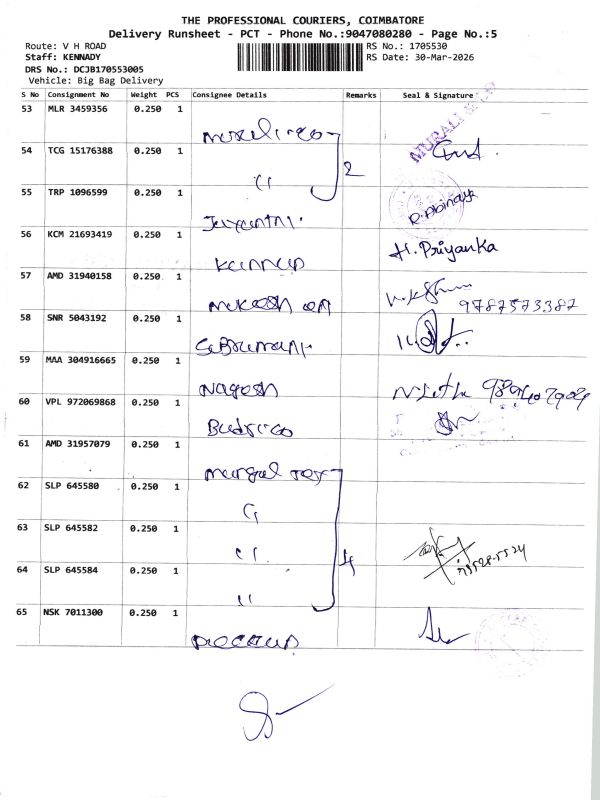 THE PROFESSIONAL COURIERS, COIMBATORE
Delivery Runsheet - PCT - Phone No.:9047080280 - Page No.:5
Route: V H ROAD
RS No.: 1705530
Staff: KENNADY
RS Date: 30-Mar-2026
DRS No.: DCJB170553005
Vehicle: Big Bag Delivery
S No Consignment No Weight PCS Consignee Details Remarks Seal & Signature
53 MLR 3459356 0.250 1
MURALI
54 TCG 15176388 0.250 1
" 2
55 TRP 1096599 0.250 1
R. Abinaya
Jayanthi
56 KCM 21693419 0.250 1
H. Priyanka
Kannan
57 AMD 31940158 0.250 1
9787573387
58 SNR 5043192 0.250 1
Subramani
59 MAA 304916665 0.250 1
Nagesh
60 VPL 972069868 0.250 1
61 AMD 31957079 0.250 1
62 SLP 645580 0.250 1
"
63 SLP 645582 0.250 1
" 4
64 SLP 645584 0.250 1
"
65 NSK 7011300 0.250 1